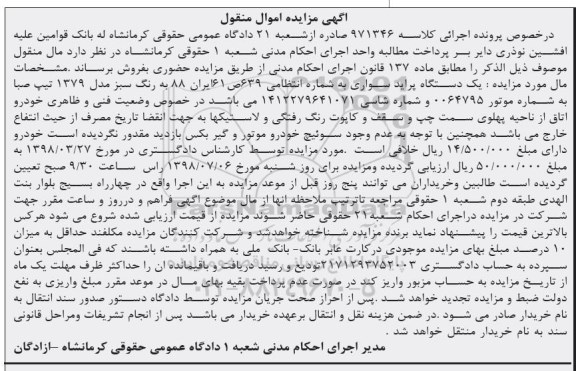 آگهی مزایده اموال منقول
درخصوص پرونده اجرائی کلاسه ۹۷۱۳۴۶ صادره ازشعبه ۲۱ دادگاه عمومی حقوقی کرمانشاه له بانک قوامین علیه
افشین نوذری دایر بر پرداخت مطالبه واحد اجرای احکام مدنی شعبه ۱ حقوقی کرمانشاه در نظر دارد مال منقول
موصوف ذیل الذکر را مطابق ماده ۱۳۷ قانون اجرای احکام مدنی از طریق مزایده حضوری بفروش برساند .مشخصات
مال مورد مزایده : یک دستگاه پراید سواری به شماره انتظامی ۶۳۹ص۶۱ایران ۸۸ به رنگ سبز مدل ۱۳۷۹ تیپ صبا
به شماره موتور ۰۰۶۴۷۹۵ و شماره شاسی ۱۴۱۲۲۷۹۶۴۱۰۷۱ می باشد در خصوص وضعیت فنی و ظاهری خودرو
اتاق از ناحیه پهلوی سمت چپ و سقف و کاپوت رنگ رفتگی و لاستیکها به جهت انقضا تاریخ مصرف از حیث انتفاع
خارج می باشد همچنین با توجه به عدم وجود سوئیچ خودرو موتور و گیر بکس بازدید مقدور نگردیده است خودرو
دارای مبلغ ۱۴/۵۰۰/۰۰۰ ریال خلافی است .مورد مزایده توسط کارشناس دادگستری در مورخ ۱۳۹۸/۰۳/۲۷ به
مبلغ ۵۰/۰۰۰/۰۰۰ ریال ارزیابی گردیده ومزایده برای روز شنبه مورخ ۱۳۹۸/۰۷/۰۶راس ساعت ۹/۳۰ صبح تعیین
گردیده است طالبین وخریداران می توانند پنج روز قبل از موعد مزایده به این اجرا واقع در چهارراه بسیج بلوار بنت
الهدی طبقه دوم شعبه ۱ حقوقی مراجعه تاترتیب ملاحظه انها از مال موضوع آگهی فراهم و درروز و ساعت مقرر جهت
شرکت در مزایده دراجرای احکام شعبه۲۱ حقوقی حاضر شوند مزایده از قیمت ارزیابی شده شروع می شود هرکس
بالاترین قیمت را پیشنهاد نماید برنده مزایده شناخته خواهدشد و شرکت کنندگان مزایده مکلفند حداقل به میزان
۱۰ درصد مبلغ بهای مزایده موجودی درکارت عابر بانک- بانک ملی به همراه داشته باشند که فی المجلس بعنوان
سپرده به حساب دادگستری ۲۱۷۱۲۹۳۷۵۲۰۰۳تودیع و رسید دریافت و باقیمانده ان را حداکثر ظرف مهلت یک ماه
از تاریخ مزایده به حساب مزبور واریز کند در صورت عدم پرداخت بقیه بهای مال در موعد مقرر مبلغ واریزی به نفع
دولت ضبط و مزایده تجدید خواهد شد .پس از احراز صحت جریان مزایده توسط دادگاه دستور صدور سند انتقال به
نام خریدار صادر می شود .در ضمن هزینه نقل و انتقال برعهده خریدار می باشد پس از انجام تشریفات ومراحل قانونی
سند به نام خریدار منتقل خواهد شد .
مدیر اجرای احکام مدنی شعبه ۱ دادگاه عمومی حقوقی کرمانشاه –ازادگان